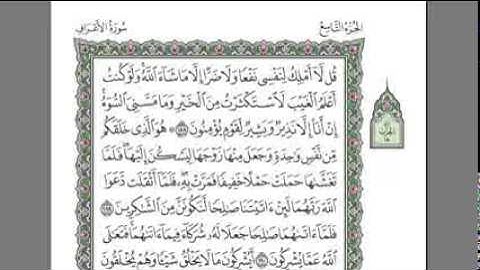 الجزء التاسع
سورة الأعراف
قُل لَّآ أَمْلِكُ لِنَفْسِى نَفْعًا وَلَا ضَرًّا إِلَّا مَا شَآءَ ٱللَّهُ وَلَوْ كُنتُ
أَعْلَمُ ٱلْغَيْبَ لَٱسْتَكْثَرْتُ مِنَ ٱلْخَيْرِ وَمَا مَسَّنِىَ ٱلسُّوٓءُ
إِنْ أَنَا۠ إِلَّا نَذِيرٌ وَبَشِيرٌ لِّقَوْمٍ يُؤْمِنُونَ ١٨٨ هُوَ ٱلَّذِى خَلَقَكُم
مِّن نَّفْسٍ وَٰحِدَةٍ وَجَعَلَ مِنْهَا زَوْجَهَا لِيَسْكُنَ إِلَيْهَا فَلَمَّا
تَغَشَّىٰهَا حَمَلَتْ حَمْلًا خَفِيفًا فَمَرَّتْ بِهِۦ فَلَمَّآ أَثْقَلَت دَّعَوَا
ٱللَّهَ رَبَّهُمَا لَئِنْ ءَاتَيْتَنَا صَٰلِحًا لَّنَكُونَنَّ مِنَ ٱلشَّٰكِرِينَ ١٨٩
فَلَمَّآ ءَاتَىٰهُمَا صَٰلِحًا جَعَلَا لَهُۥ شُرَكَآءَ فِيمَآ ءَاتَىٰهُمَا فَتَعَٰلَى
ٱللَّهُ عَمَّا يُشْرِكُونَ ١٩٠ أَيُشْرِكُونَ مَا لَا يَخْلُقُ شَيْـًٔا وَهُمْ يُخْلَقُونَ